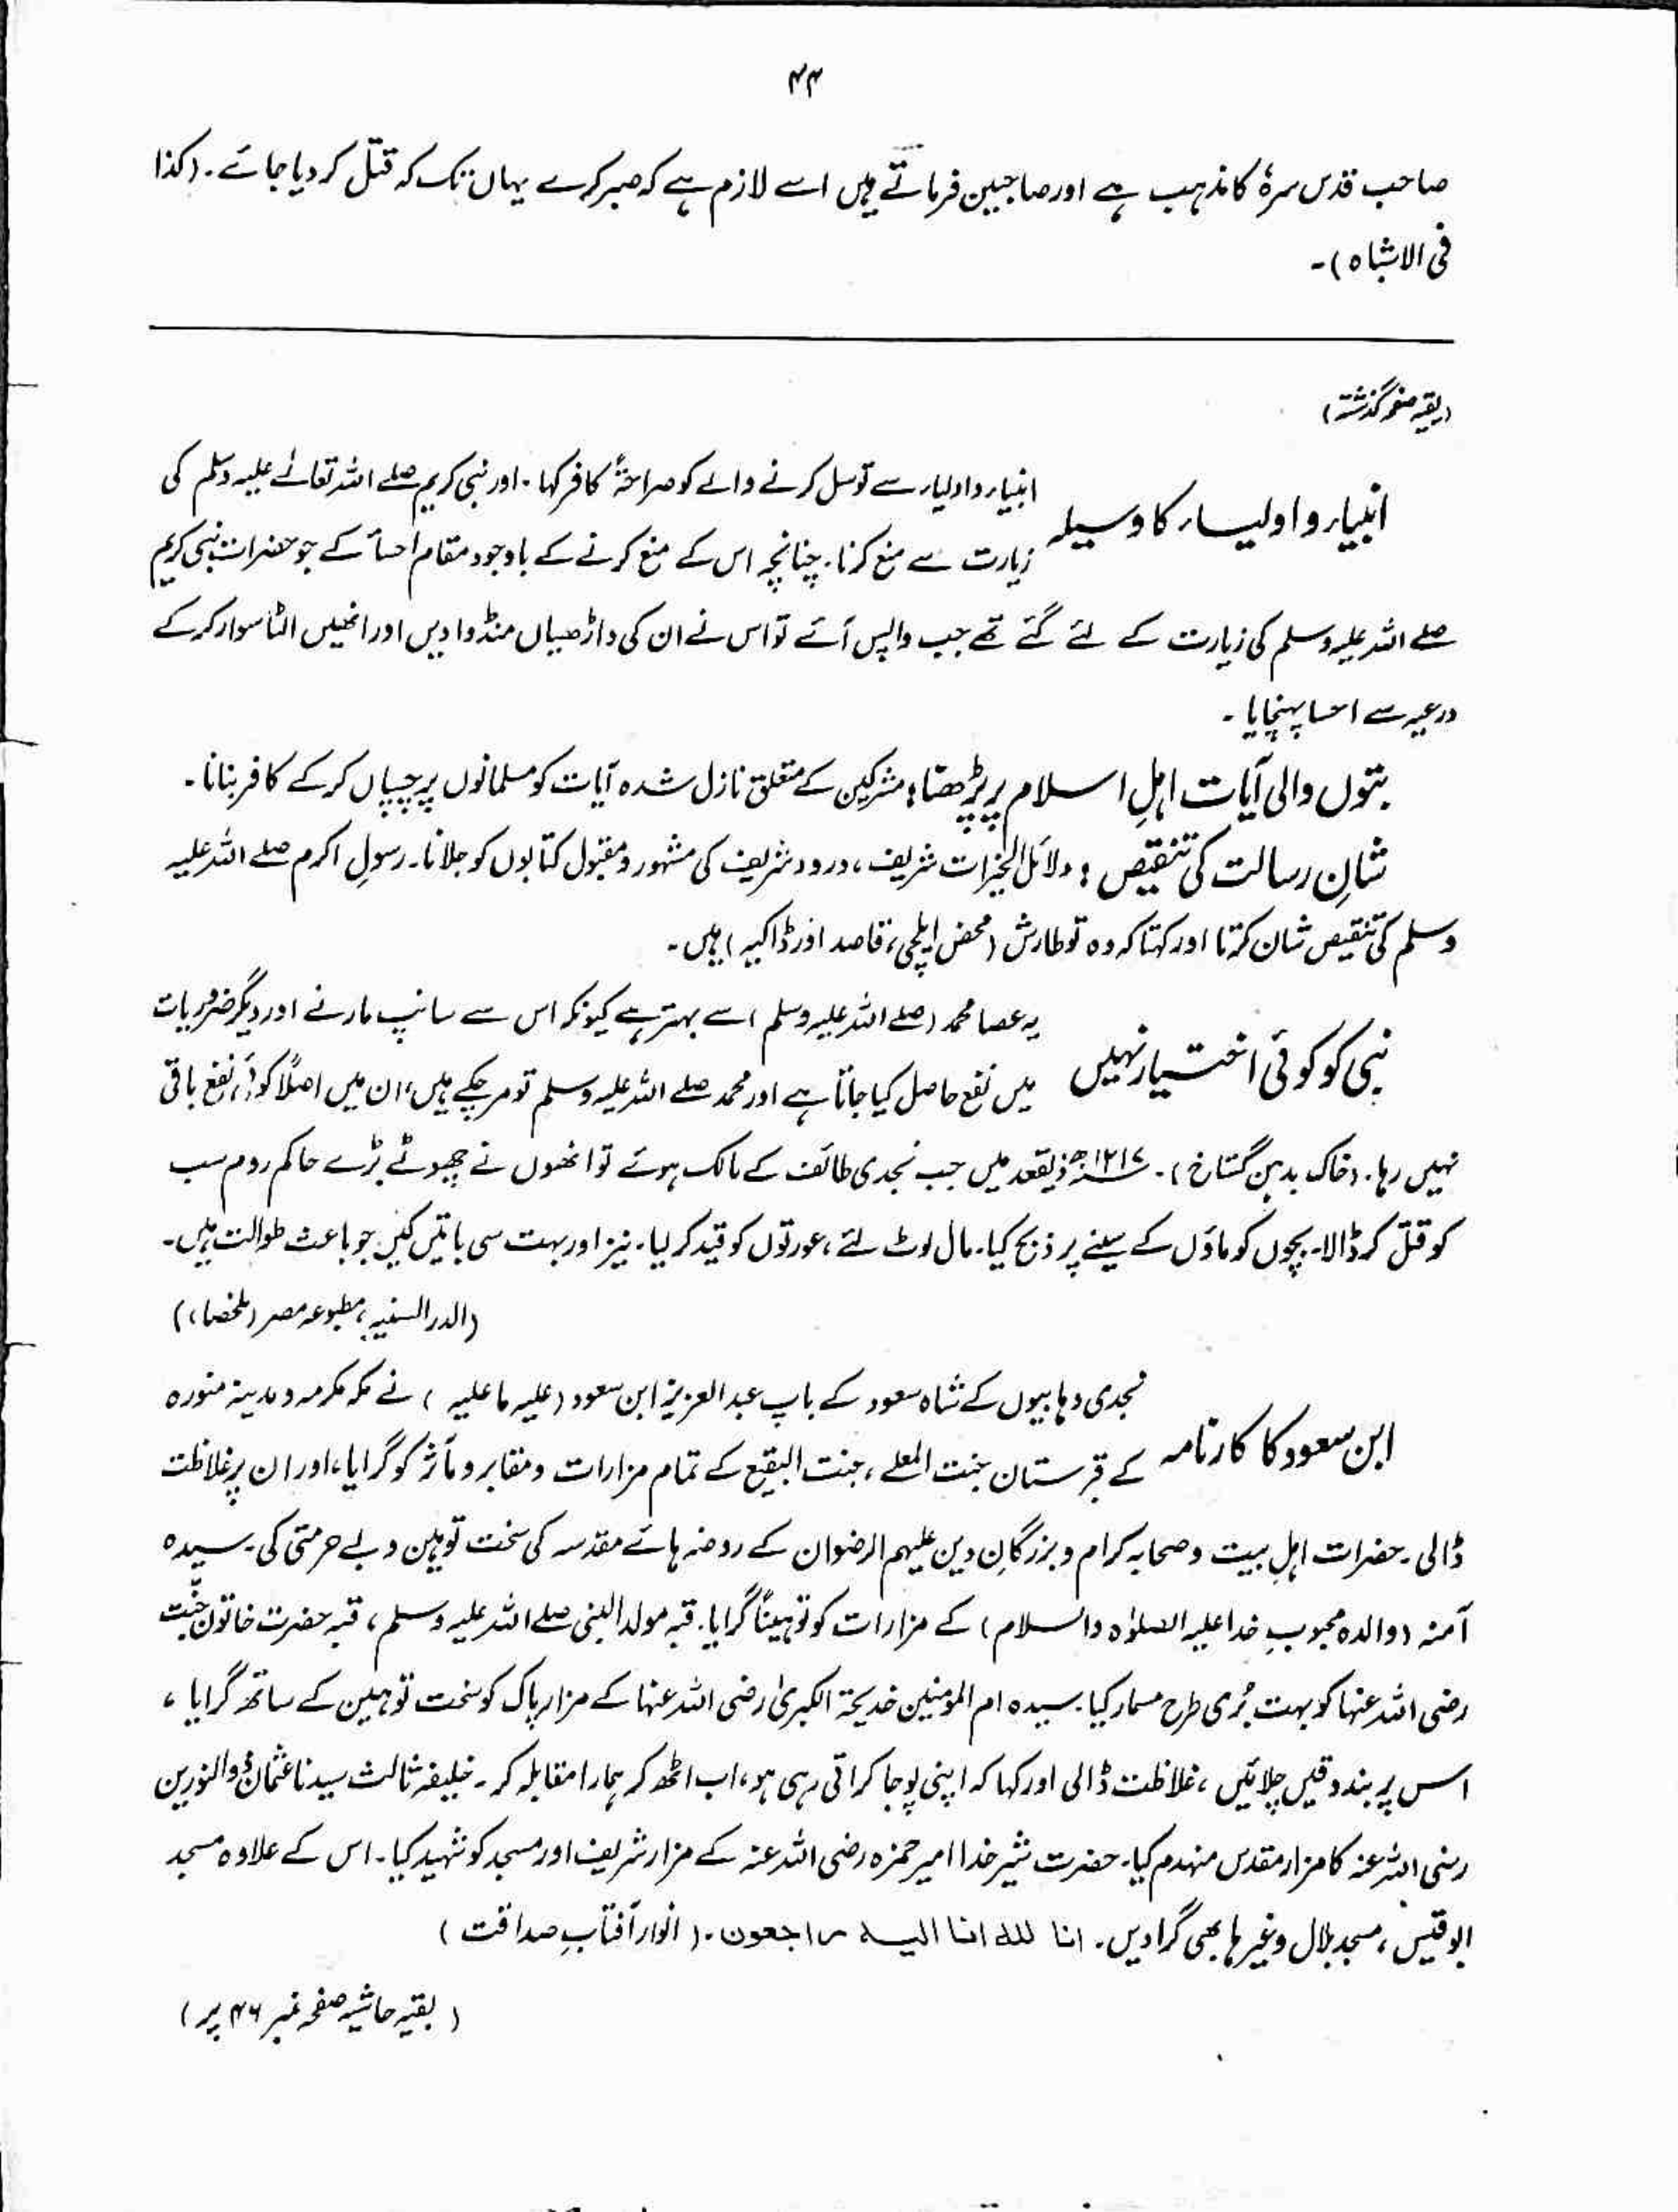 ۴۴
صاحب قدس سرہٗ کا مذہب ہے اور صاحبین فرماتے ہیں اسے لازم ہے کہ صبر کرے یہاں تک کہ قتل کر دیا جائے۔ (کذا
فی الاشباہ)۔
(بقیہ صفحہ گذشتہ)
انبیاء و اولیاء کا وسیلہ انبیاء و اولیاء سے توسل کرنے والے کو صراحۃً کافر کہا۔ اور نبی کریم صلے اللہ تعالےٰ علیہ وسلم کی
زیارت سے منع کرنا۔ چنانچہ اس کے منع کرنے کے باوجود مقام احسأ کے جو حضرات نبی کریم
صلے اللہ علیہ وسلم کی زیارت کے لئے گئے تھے جب واپس آئے تو اس نے ان کی داڑھیاں منڈوا دیں اور انھیں الٹا سوار کرکے
درعیہ سے احسا پہنچایا۔
بتوں والی آیات اہلِ اسلام پر پڑھنا: مشرکین کے متعلق نازل شدہ آیات کو مسلمانوں پر چسپاں کرکے کافر بنانا۔
شانِ رسالت کی تنقیص: دلائل الخیرات شریف، درود شریف کی مشہور و مقبول کتابوں کو جلانا۔ رسولِ اکرم صلے اللہ علیہ
وسلم کی تنقیص شان کرتا اور کہتا کہ وہ تو طارش (محض ایلچی، قاصد اور ڈاکیہ) ہیں۔
نبی کو کوئی اختیار نہیں یہ عصا محمد (صلے اللہ علیہ وسلم) سے بہتر ہے کیونکہ اس سے سانپ مارنے اور دیگر ضروریات
میں نفع حاصل کیا جاتا ہے اور محمد صلے اللہ علیہ وسلم تو مر چکے ہیں، ان میں اصلاً کوئی نفع باقی
نہیں رہا۔ (خاک بدہن گستاخ)۔ ۱۲۱۷ھ ذیقعد میں جب نجدی طائف کے مالک ہوئے تو انھوں نے چھوٹے بڑے حاکم روم سب
کو قتل کر ڈالا۔ بچوں کو ماؤں کے سینے پر ذبح کیا۔ مال لوٹ لئے، عورتوں کو قید کر لیا۔ نیز اور بہت سی باتیں کیں جو باعث طوالت ہیں۔
(الدرالسنیہ، مطبوعہ مصر (ملخصا))
ابن سعود کا کارنامہ نجدی وہابیوں کے شاہ سعود کے باپ عبدالعزیز ابن سعود (علیہ ما علیہ) نے مکہ مکرمہ و مدینہ منورہ
کے قبرستان جنت المعلے، جنت البقیع کے تمام مزارات و مقابر و مآثر کو گرایا، اور ان پر غلاظت
ڈالی۔ حضرات اہلِ بیت و صحابہ کرام و بزرگانِ دین علیہم الرضوان کے روضہ ہائے مقدسہ کی سخت توہین و بے حرمتی کی۔ سیدہ
آمنہ (والدہ محبوبِ خدا علیہ الصلوٰہ والسلام) کے مزارات کو توہیناً گرایا۔ قبہ مولد النبی صلے اللہ علیہ وسلم، قبہ حضرت خاتون جنّت
رضی اللہ عنہا کو بہت بُری طرح مسمار کیا۔ سیدہ ام المؤمنین خدیجۃ الکبریٰ رضی اللہ عنہا کے مزار پاک کو سخت توہین کے ساتھ گرایا،
اس پر بندوقیں چلائیں، غلاظت ڈالی اور کہا کہ اپنی پوجا کراتی رہی ہو، اب اٹھ کر ہمارا مقابلہ کر۔ خلیفہ ثالث سیدنا عثمان ذوالنورین
رضی اللہ عنہ کا مزار مقدس منہدم کیا۔ حضرت شیر خدا امیر حمزہ رضی اللہ عنہ کے مزار شریف اور مسجد کو شہید کیا۔ اس کے علاوہ مسجد
ابوقبیس، مسجد بلال وغیرہا بھی گرا دیں۔ انا للہ انا الیہ راجعون۔ (انوار آفتابِ صداقت)
(بقیہ حاشیہ صفحہ نمبر ۴۶ پر)